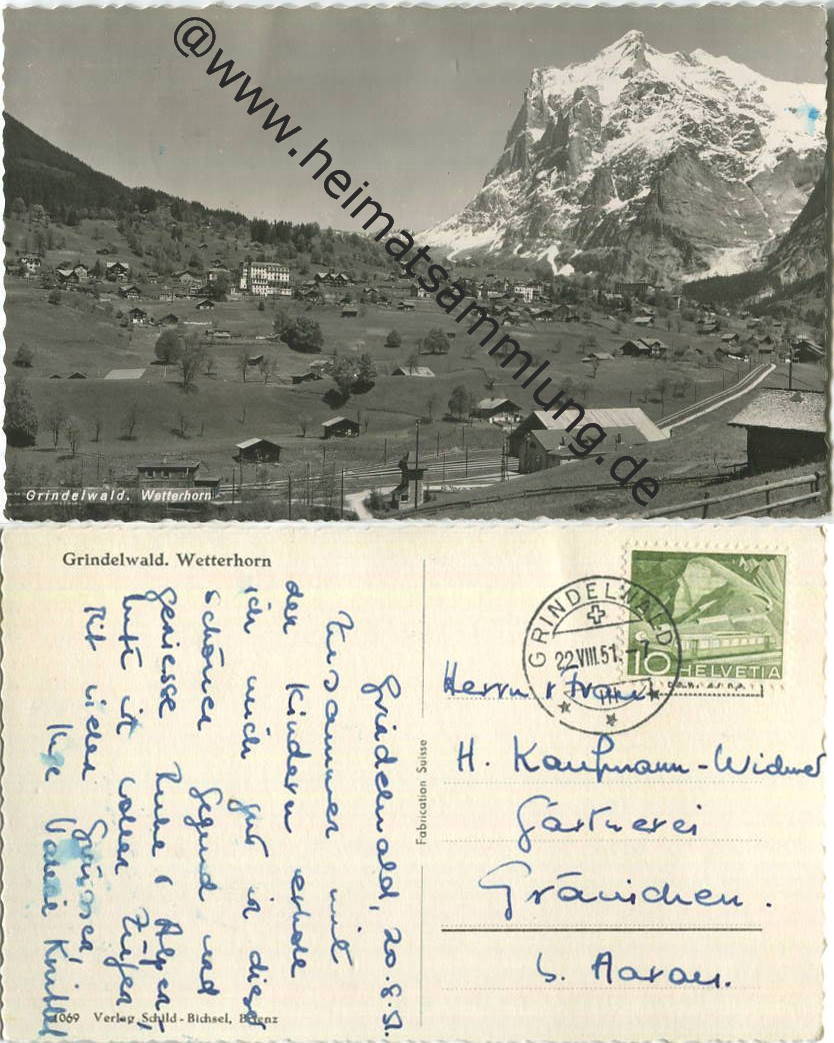 @www.heimatsammlung.de
Grindelwald. Wetterhorn
Grindelwald. Wetterhorn
Grindelwald, 20.8.51.
Zusammen mit
den Kindern erhole
ich mich gut in dieser
schönen Gegend und
geniesse Ruhe & Alpen-
luft in vollen Zügen.
Mit vielen Grüssen,
1069 Verlag Schild-Bichsel, Brienz
Fabrication Suisse
GRINDELWALD
22.VIII.51.-7
10 HELVETIA
Herrn & Frau
H. Kaufmann-Widmer
Gärtnerei
Gränichen.
b. Aarau.